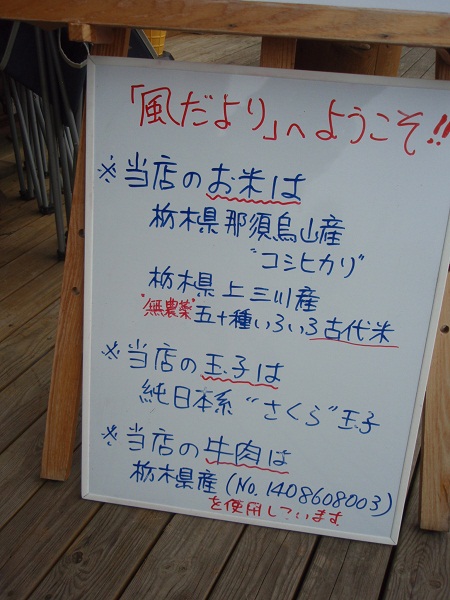 「風だより」へようこそ!!
※当店のお米は
栃木県那須烏山産
"コシヒカリ"
栃木県上三川産
"無農薬"五十種いろいろ古代米
※当店の玉子は
純日本系"さくら"玉子
※当店の牛肉は
栃木県産(No.1408608003)
を使用しています